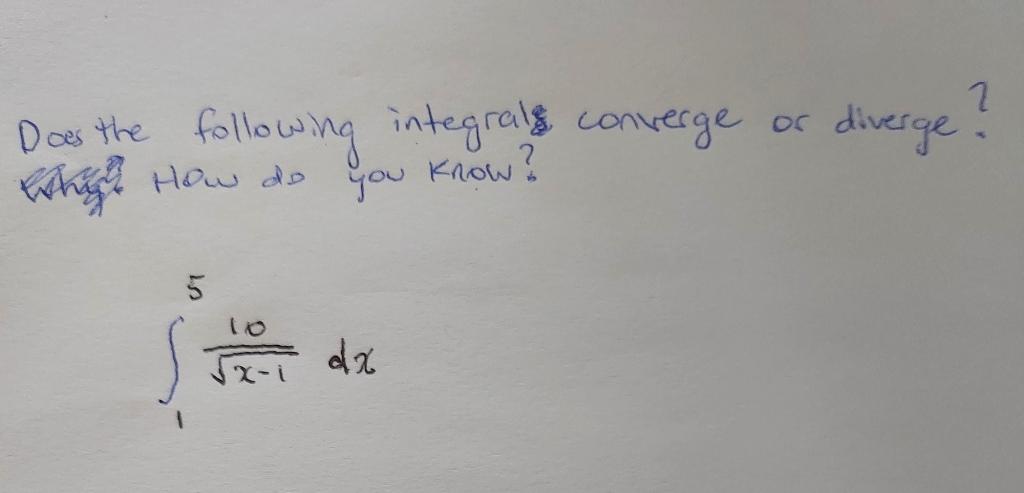 Does the following integral converge or diverge?
How do you know?
5
∫ 10/√x-1 dx
1